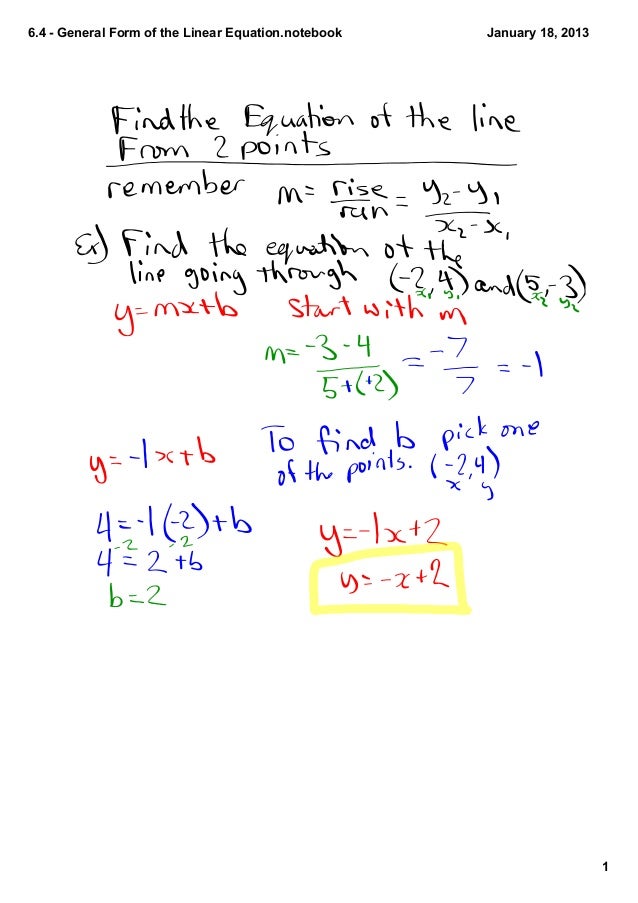 6.4 - General Form of the Linear Equation.notebook
January 18, 2013
Find the Equation of the line
From 2 points
remember m = rise/run = y₂-y₁/x₂-x₁
Ex) Find the equation of the
line going through (-2,4) and (5,-3)
x₁ y₁ x₂ y₂
y=mx+b Start with m
m= -3-4/5+(+2) = -7/7 = -1
y=-1x+b
To find b pick one
of the points. (-2,4)
x y
4=-1(-2)+b
-2 -2
4=2+b
b=2
y=-1x+2
y=-x+2
1